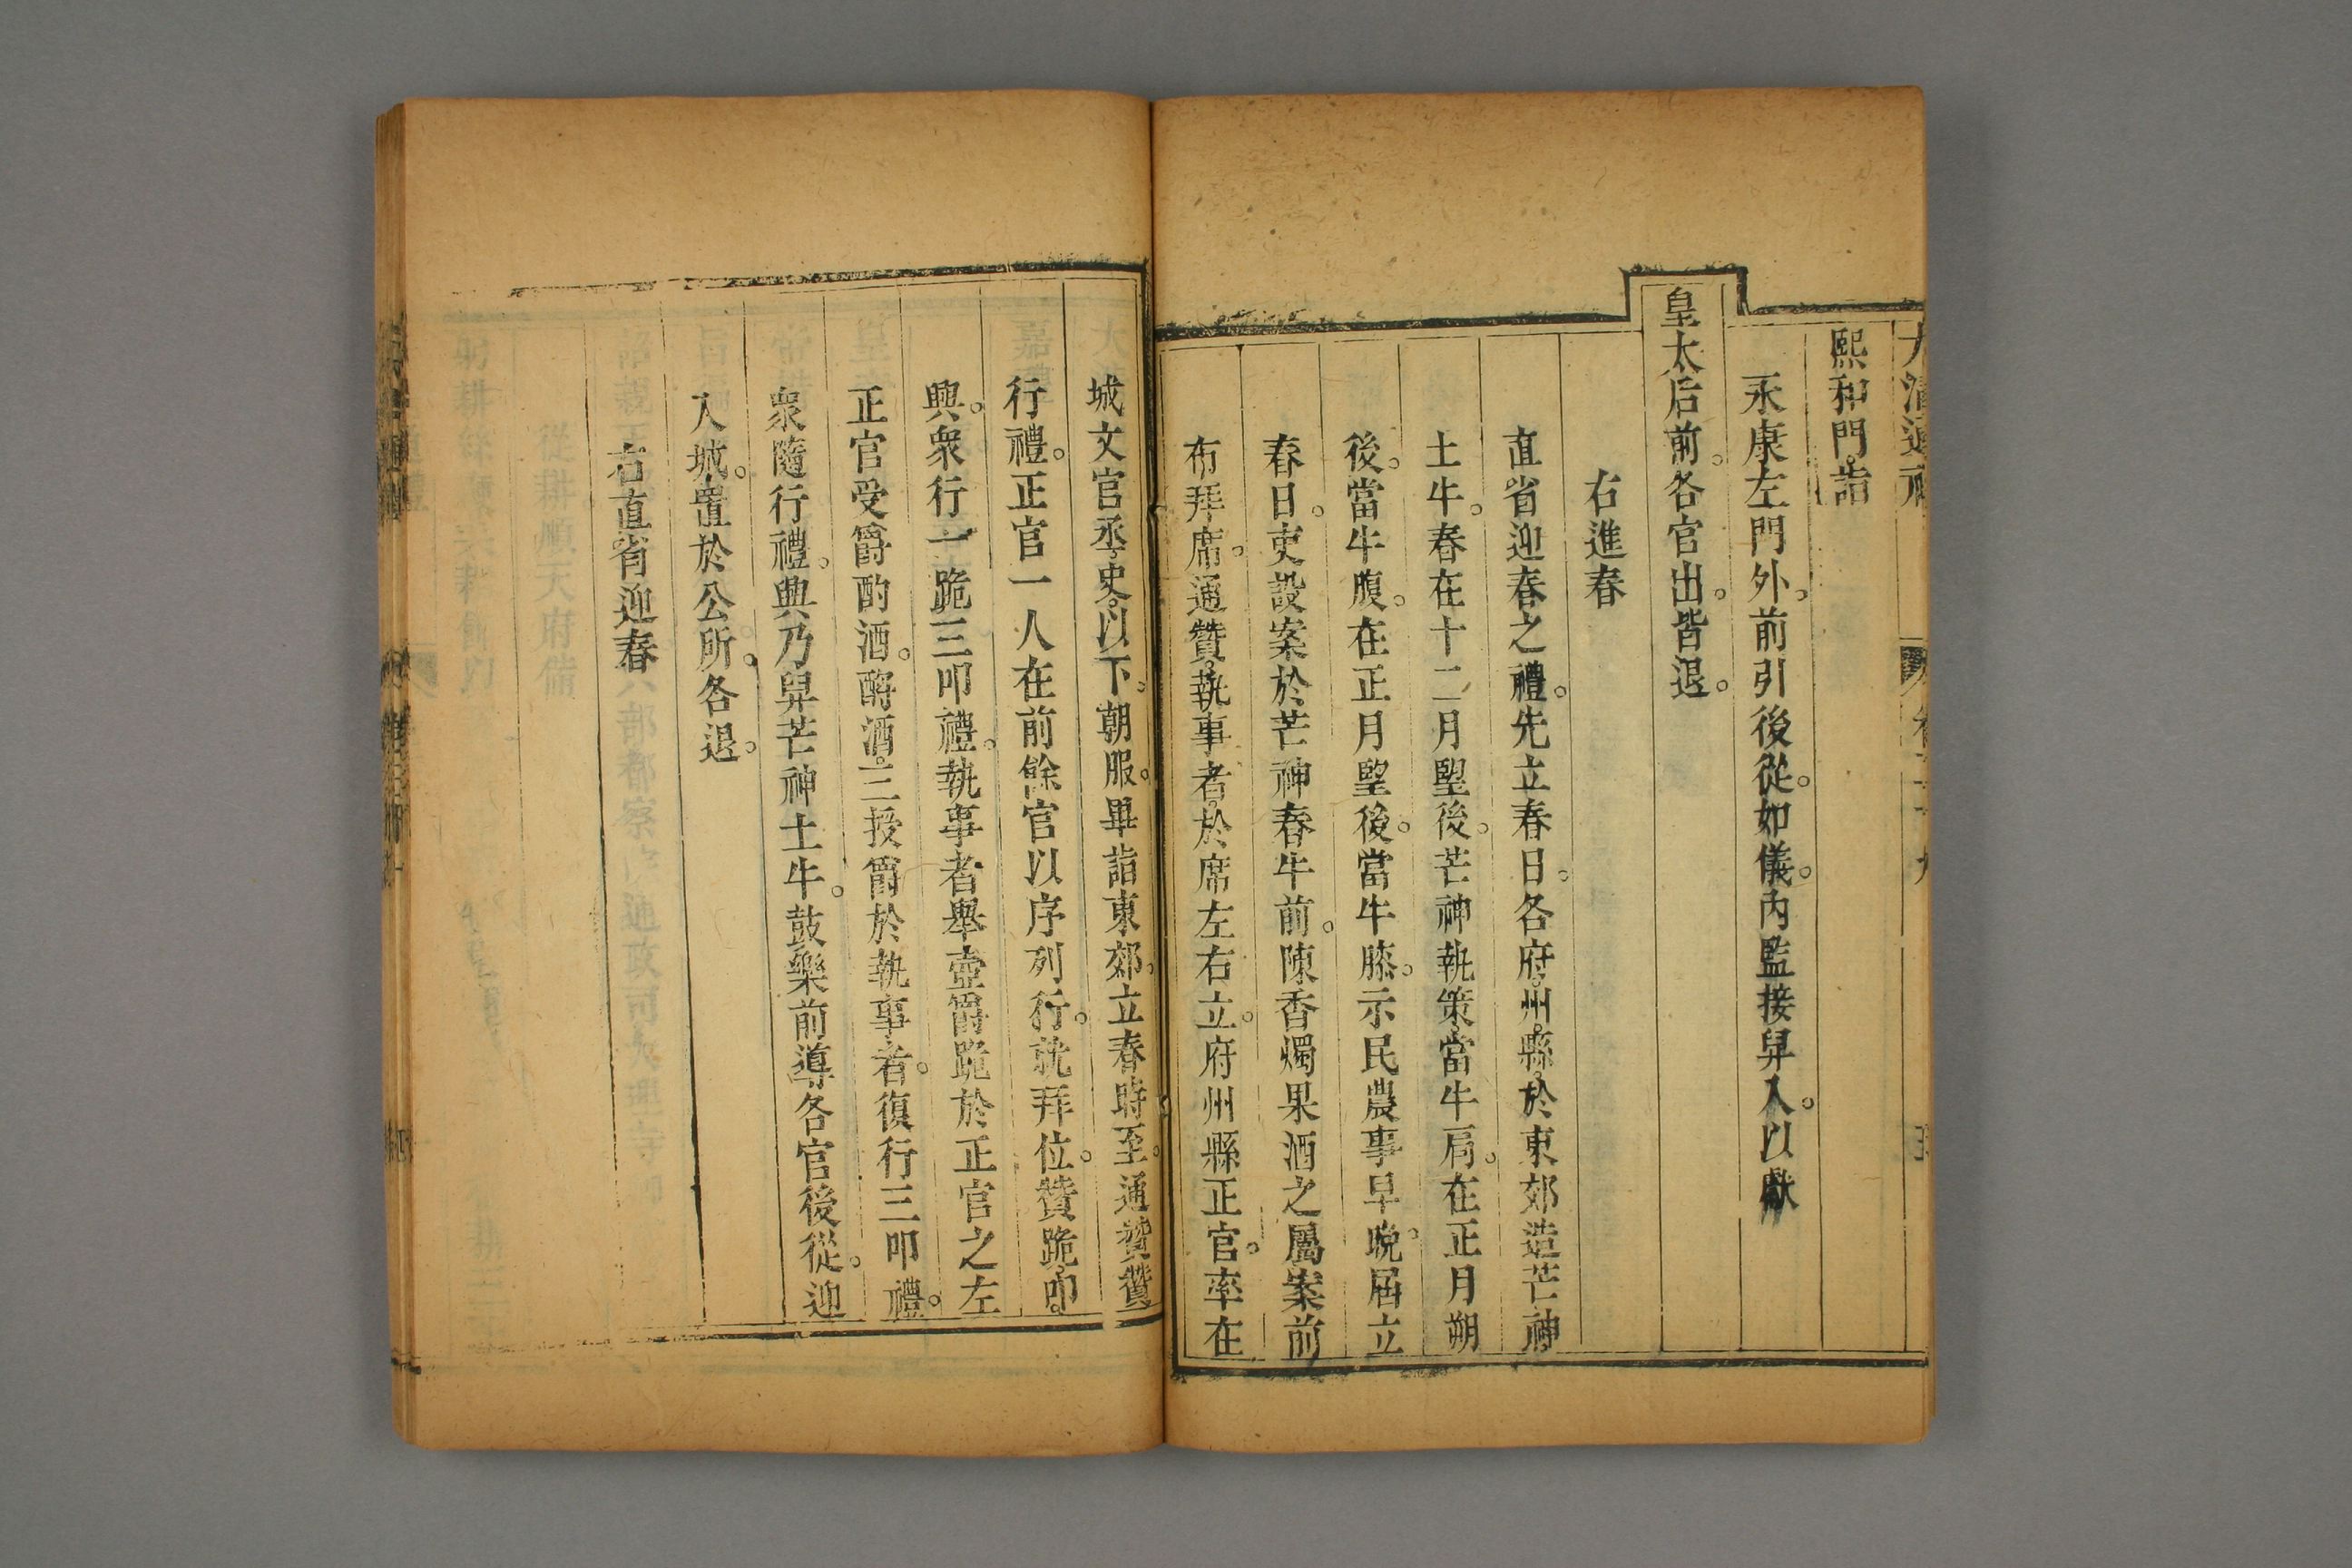 大清通禮
熙和門。詣
永康左門外。前引後從。如儀。內監接舁入。以獻
皇太后前。各官出。皆退。
右進春
直省迎春之禮。先立春日。各府。州。縣。於東郊造芒神。
土牛。春在十二月朢後。芒神執策。當牛肩。在正月朔
後。當牛腹。在正月朢後。當牛膝。示民農事早晚。屆立
春日。吏設案於芒神春牛前。陳香燭果酒之屬。案前
布拜席。通贊。執事者。於席左右立。府州縣正官。率在
城文官丞史。以下。朝服。畢詣東郊。立春時至。通贊贊
行禮。正官一人在前。餘官以序列行。就拜位。贊跪。叩。
興。眾行一跪三叩禮。執事者舉壺爵。跪於正官之左
正官受爵酌酒。酹酒三。授爵於執事者。復行三叩禮。
眾隨行禮。興。乃舁芒神土牛。鼓樂前導。各官後從。迎
入城。置於公所。各退。
右直省迎春